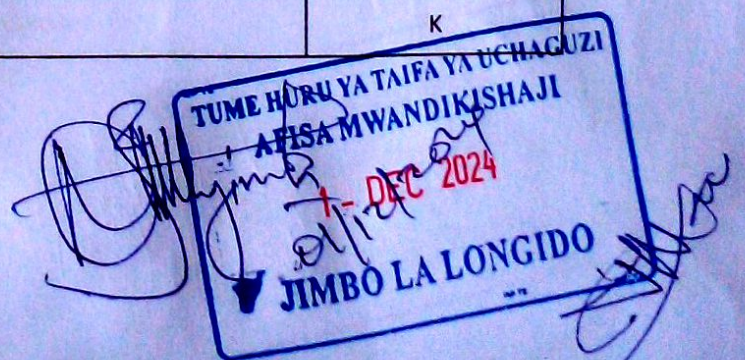 K
TUME HURU YA TAIFA YA UCHAGUZI
AFISA MWANDIKISHAJI
1 - DEC 2024
JIMBO LA LONGIDO